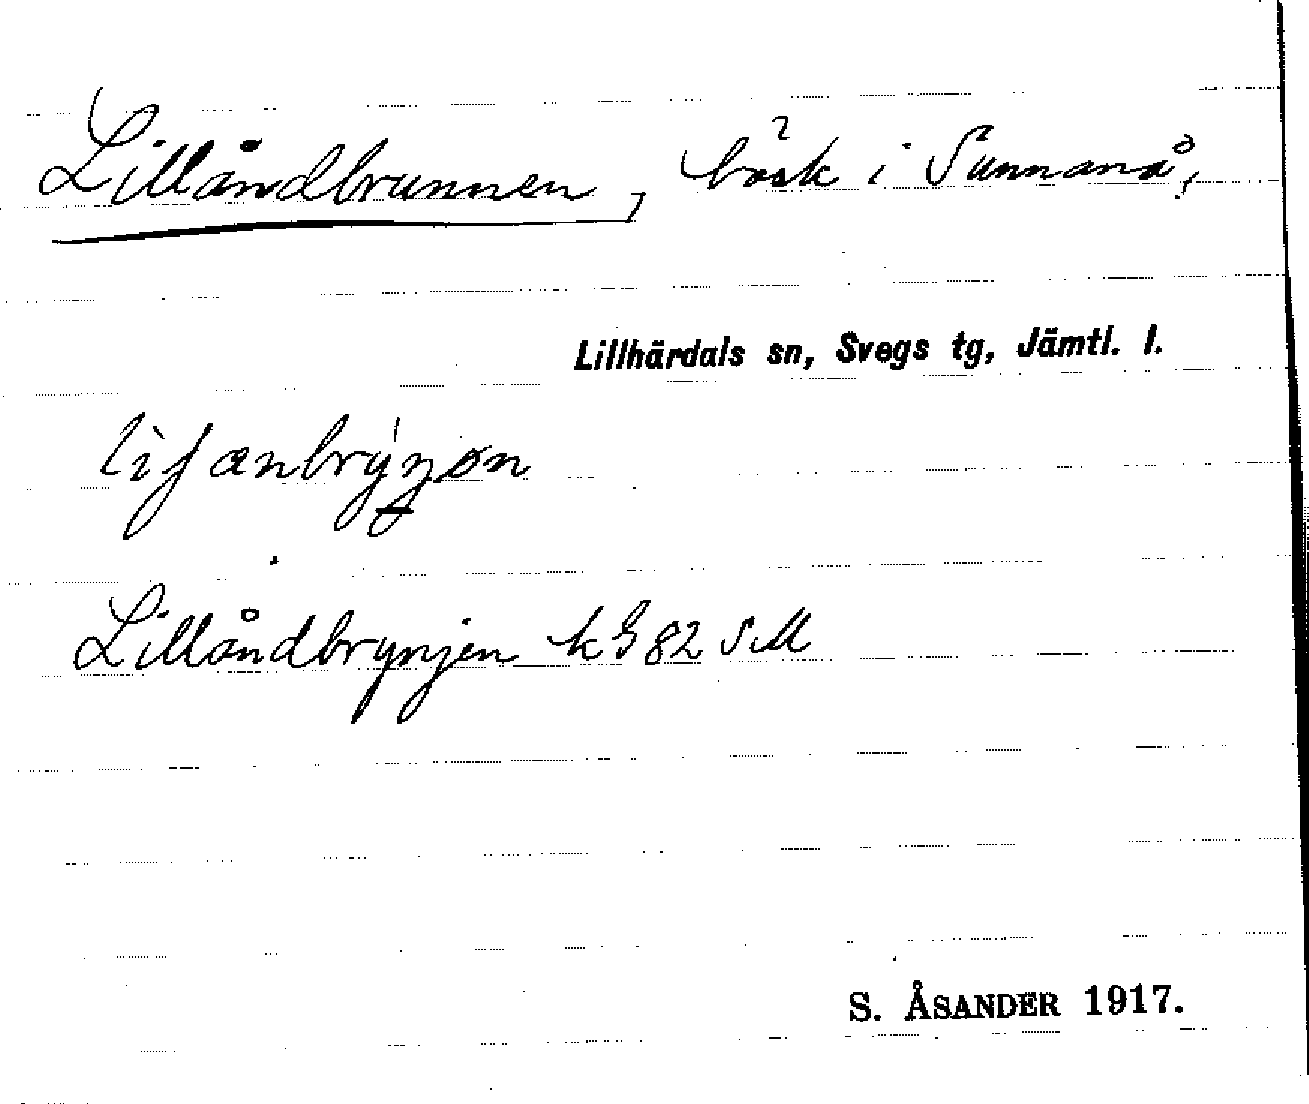 Lillåndbrunnen, bäsk i Sunnanå,
Lillhärdals sn, Svegs tg, Jämtl. l.
Lillåndbrynjen k G 82 SM
S. ÅSANDER 1917.